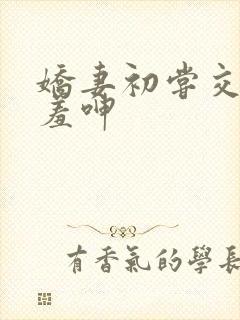 嬌妻初嘗交
羞呻
有香氣的學長